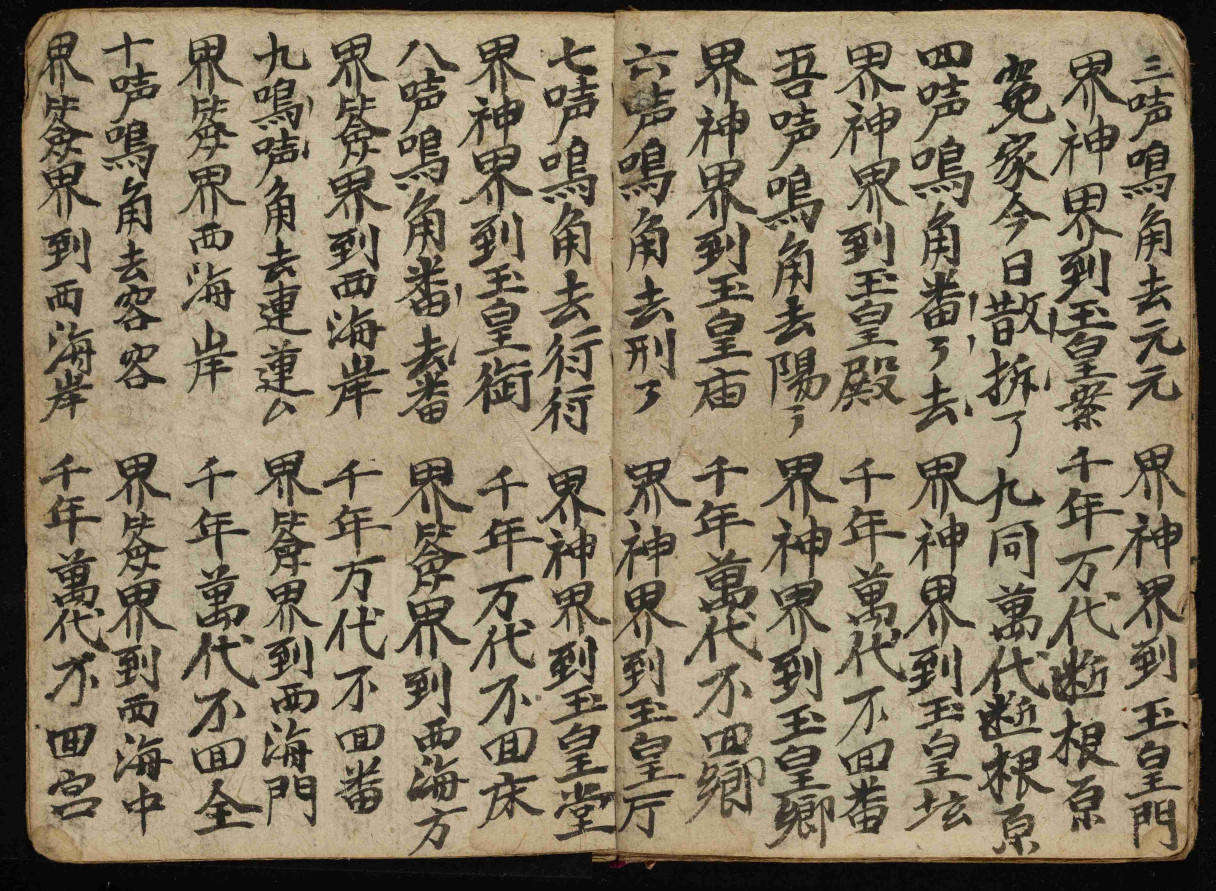 三声鳴角去元元 界神界到玉皇門
界神界到玉皇案 千年万代断根原
冤家今日散拆了 九同萬代断根原
四声鳴角番了去 界神界到玉皇坛
界神界到玉皇殿 千年萬代不回番
吾声鳴角去陽ミ 界神界到玉皇鄉
界神界到玉皇庙 千年萬代不回鄉
六声鳴角去刑了 界神界到玉皇厅
七声鳴角去行行 界神界到玉皇堂
界神界到玉皇衙 千年万代不回床
八声鳴角番去番 界界到西海方
界界到西海岸 千年万代不回番
九鳴声角去連蓮厶 界界到西海門
界界西海岸 千年萬代不回全
十声鳴角去容容 界界到西海中
界界到西海岸 千年萬代不回宫